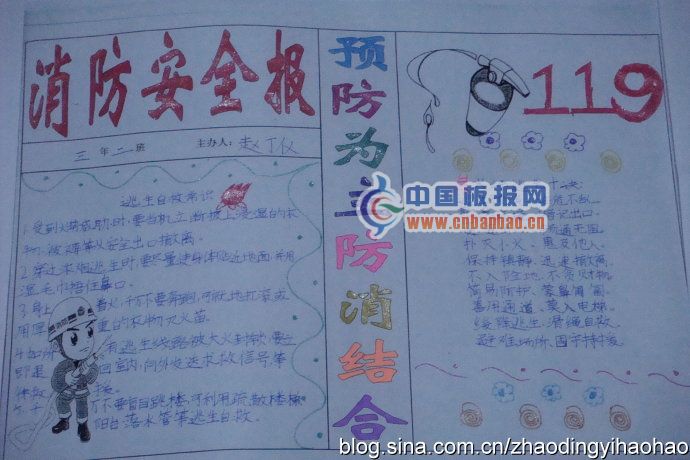 消防安全报
三年二班 主办人：赵丁仪
逃生自救常识
1.受到火势威胁时，要当机立断披上浸湿的衣
物、被褥等从安全出口撤离。
2.穿过浓烟逃生时，要尽量使身体贴近地面，并用
湿毛巾捂住鼻口。
3.身上着火，千万不要奔跑，可就地打滚或
用厚重的衣物灭火苗。
有逃生线路被大火封锁，要立
回室内，向外发送求救信号，等
不要盲目跳楼，可利用疏散楼梯
阳台、落水管等逃生自救。
预防为主防消结合
119
中国板报网
www.cnbanbao.cn
扑灭小火，惠及他人。
保持镇静，迅速撤离。
不入险地，不贪财物。
简易防护，蒙鼻匍匐。
善用通道，莫入电梯。
缓降逃生，滑绳自救。
避难场所，固守待援。
blog.sina.com.cn/zhaodingyihaohao